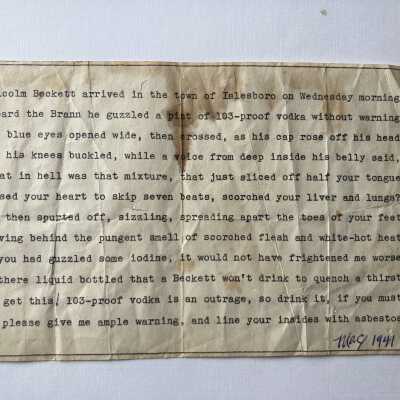 lcolm Beckett arrived in the town of Islesboro on Wednesday morning
eard the Brann he guzzled a pint of 103-proof vodka without warning
blue eyes opened wide, then crossed, as his cap rose off his head
his knees buckled, while a voice from deep inside his belly said,
at in hell was that mixture, that just sliced off half your tongue
sed your heart to skip seven beats, scorched your liver and lungs?
then spurted off, sizzling, spreading apart the toes of your feet
ving behind the pungent smell of scorched flesh and white-hot heat
you had guzzled some iodine, it would not have frightened me worse
there liquid bottled that a Beckett won't drink to quench a thirst
get this! 103-proof vodka is an outrage, so drink it, if you must
please give me ample warning, and line your insides with asbestos
1941